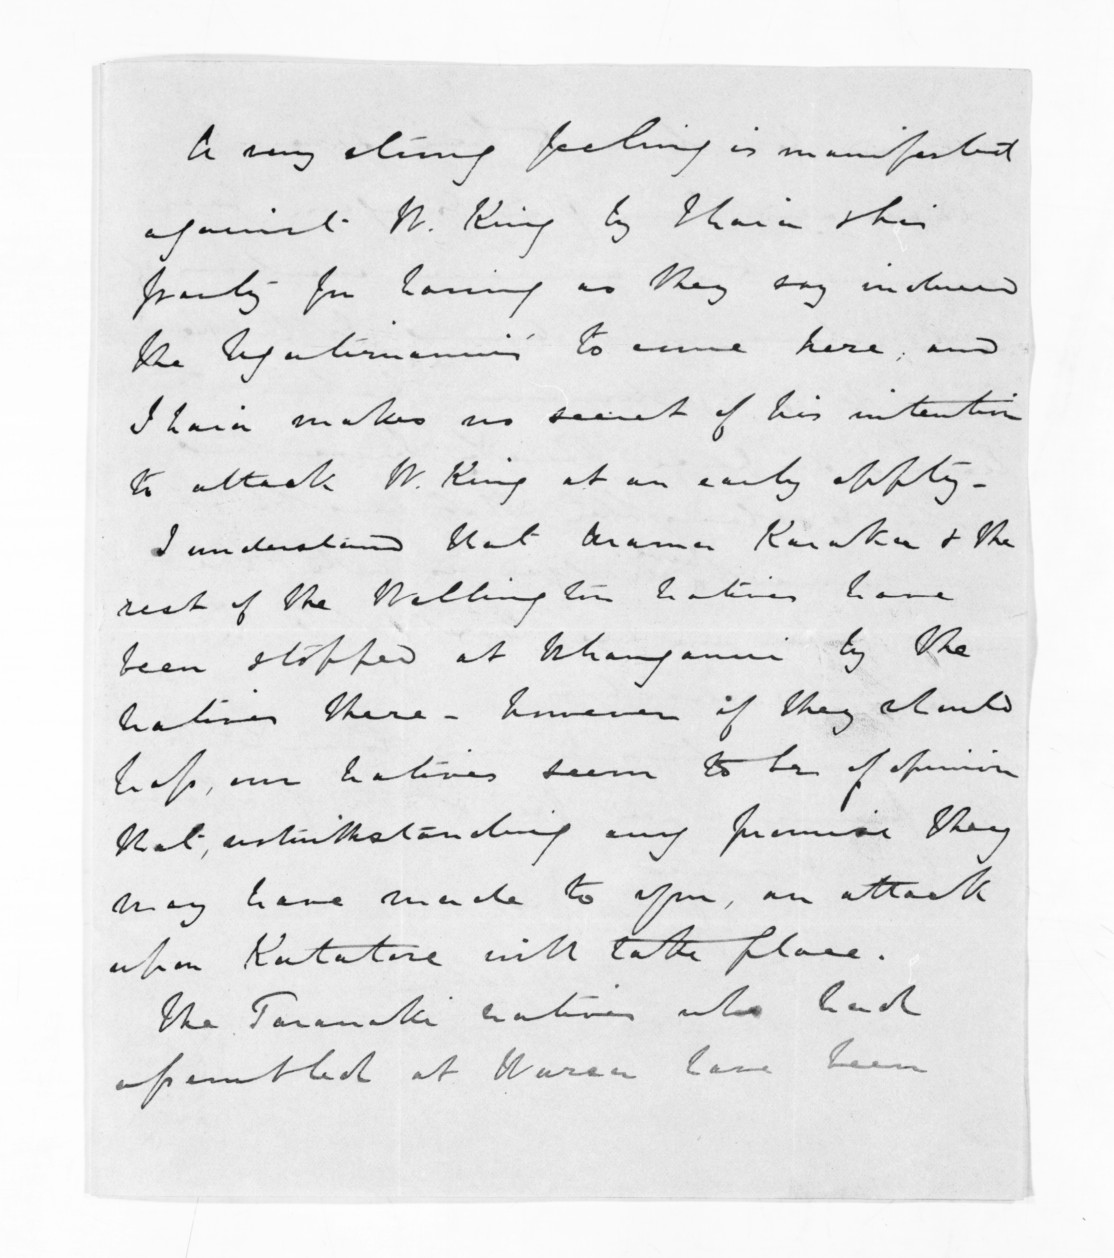 A very strong feeling is manifested
against W. King by Ihaia & his
party for having as they say induced
the Ngatiruanui's to come here, and
Ihaia makes no secret of his intention
to attack W. King at an early oppty -
I understand that Karaka & the
rest of the Wellington natives have
been stopped at Whanganui by the
natives there - however if they should
pass, our natives seem to be of opinion
that, notwithstanding any promise they
may have made to you, an attack
upon Katatore will take place.
The Taranaki natives who had
assembled at Warea have been